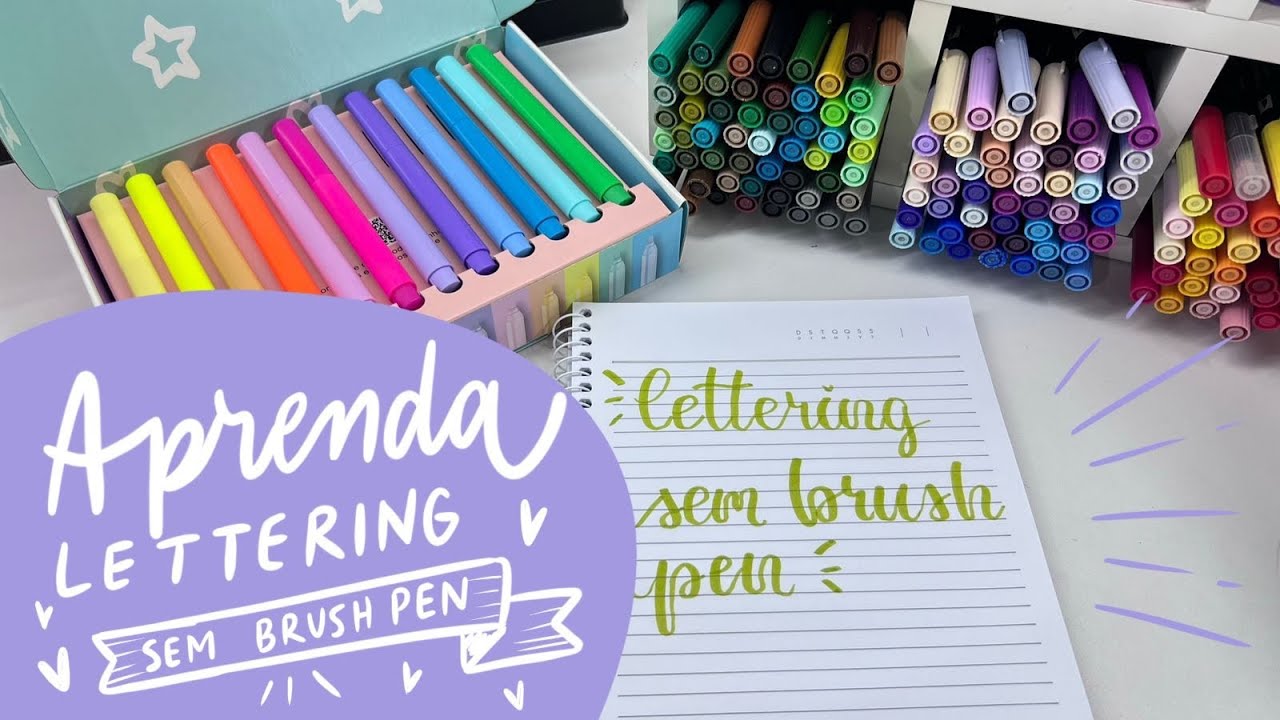 Aprenda
LETTERING
SEM BRUSH PEN
D S T Q Q S S
lettering
sem brush
pen